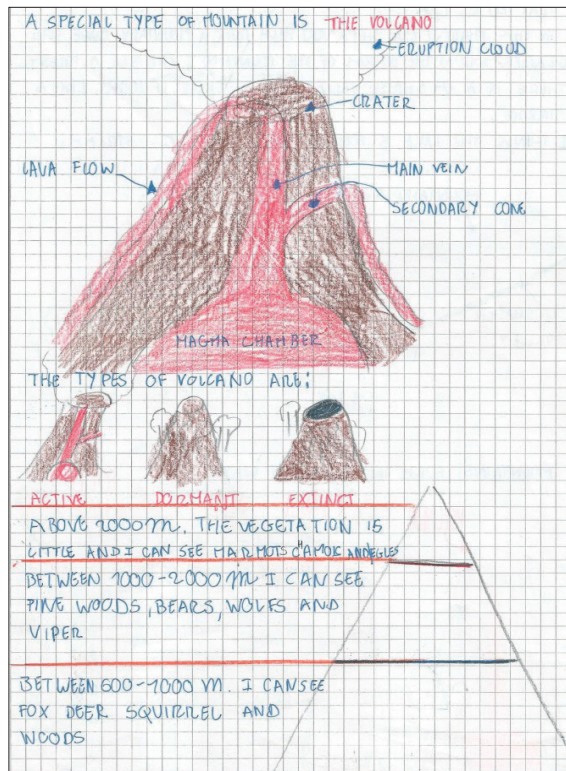 A SPECIAL TYPE OF MOUNTAIN IS THE VOLCANO
ERUPTION CLOUD
CRATER
LAVA FLOW
MAIN VEIN
SECONDARY CONE
MAGMA CHAMBER
THE TYPES OF VOLCANO ARE:
ACTIVE DORMANT EXTINCT
ABOVE 2000 m. THE VEGETATION IS
LITTLE AND I CAN SEE MARMOTS CHAMOIS AND EGLES
BETWEEN 1000-2000 m I CAN SEE
PINE WOODS, BEARS, WOLFS AND
VIPER
BETWEEN 600-1000 m. I CAN SEE
FOX DEER SQUIRREL AND
WOODS